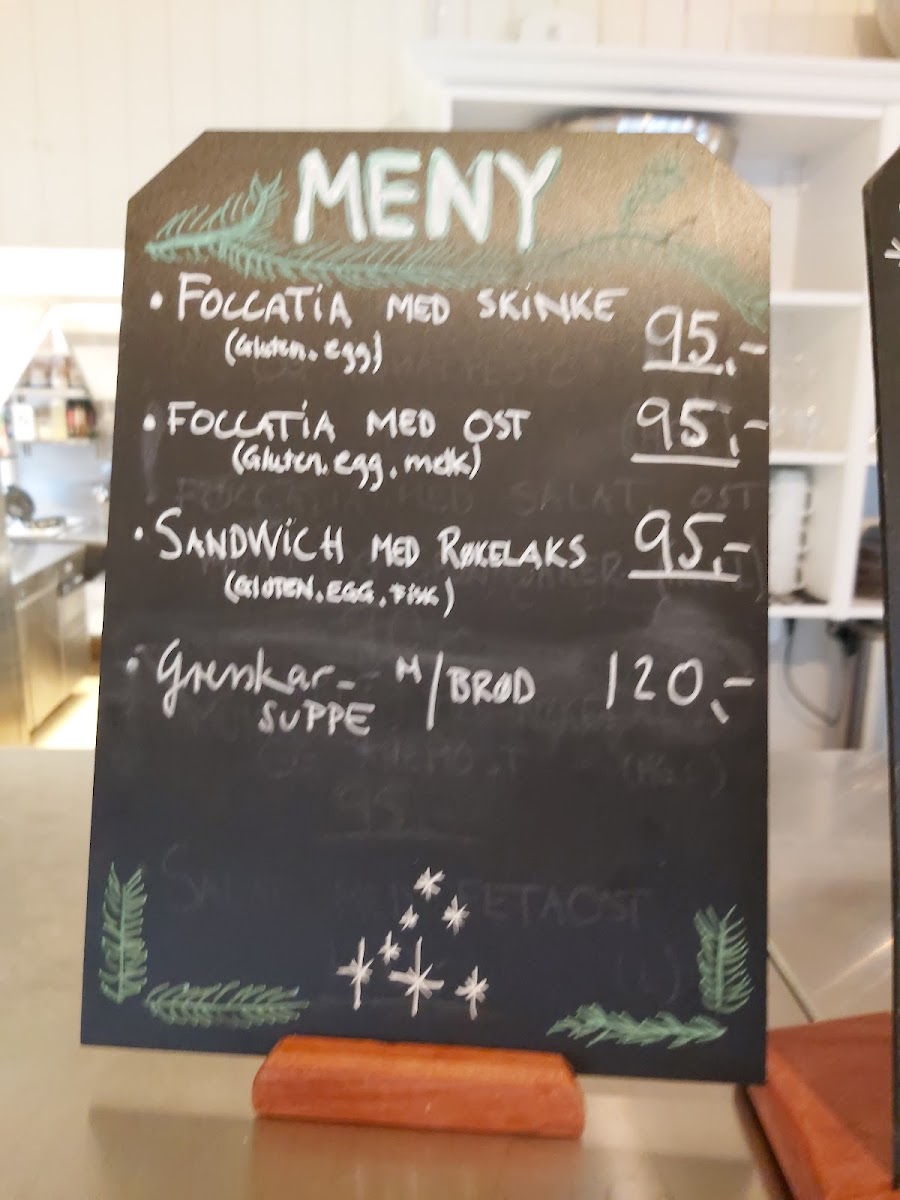 MENY
• FOCCATIA MED SKINKE 95,-
(Gluten, egg)
• FOCCATIA MED OST 95,-
(Gluten, egg, melk)
• SANDWICH MED RØKELAKS 95,-
(GLUTEN, EGG, FISK)
• Gresskar- M/BRØD 120,-
SUPPE